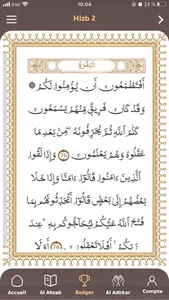 inwi
10:04
19 %
Hizb 2
البقرة
أَفَتَطْمَعُونَ أَن يُؤْمِنُوا۟ لَكُمْ
وَقَدْ كَانَ فَرِيقٌ مِّنْهُمْ يَسْمَعُونَ
كَلَٰمَ ٱللَّهِ ثُمَّ يُحَرِّفُونَهُۥ مِنۢ بَعْدِ مَا
عَقَلُوهُ وَهُمْ يَعْلَمُونَ ٧٥ وَإِذَا لَقُوا۟
ٱلَّذِينَ ءَامَنُوا۟ قَالُوٓا۟ ءَامَنَّا وَإِذَا خَلَا
بَعْضُهُمْ إِلَىٰ بَعْضٍ قَالُوٓا۟ أَتُحَدِّثُونَهُم بِمَا
فَتَحَ ٱللَّهُ عَلَيْكُمْ لِيُحَآجُّوكُم بِهِۦ عِندَ
رَبِّكُمْ أَفَلَا تَعْقِلُونَ ٧٦ أَوَلَا
Accueil
Al Ahzab
Badges
Al Adhkar
Compte